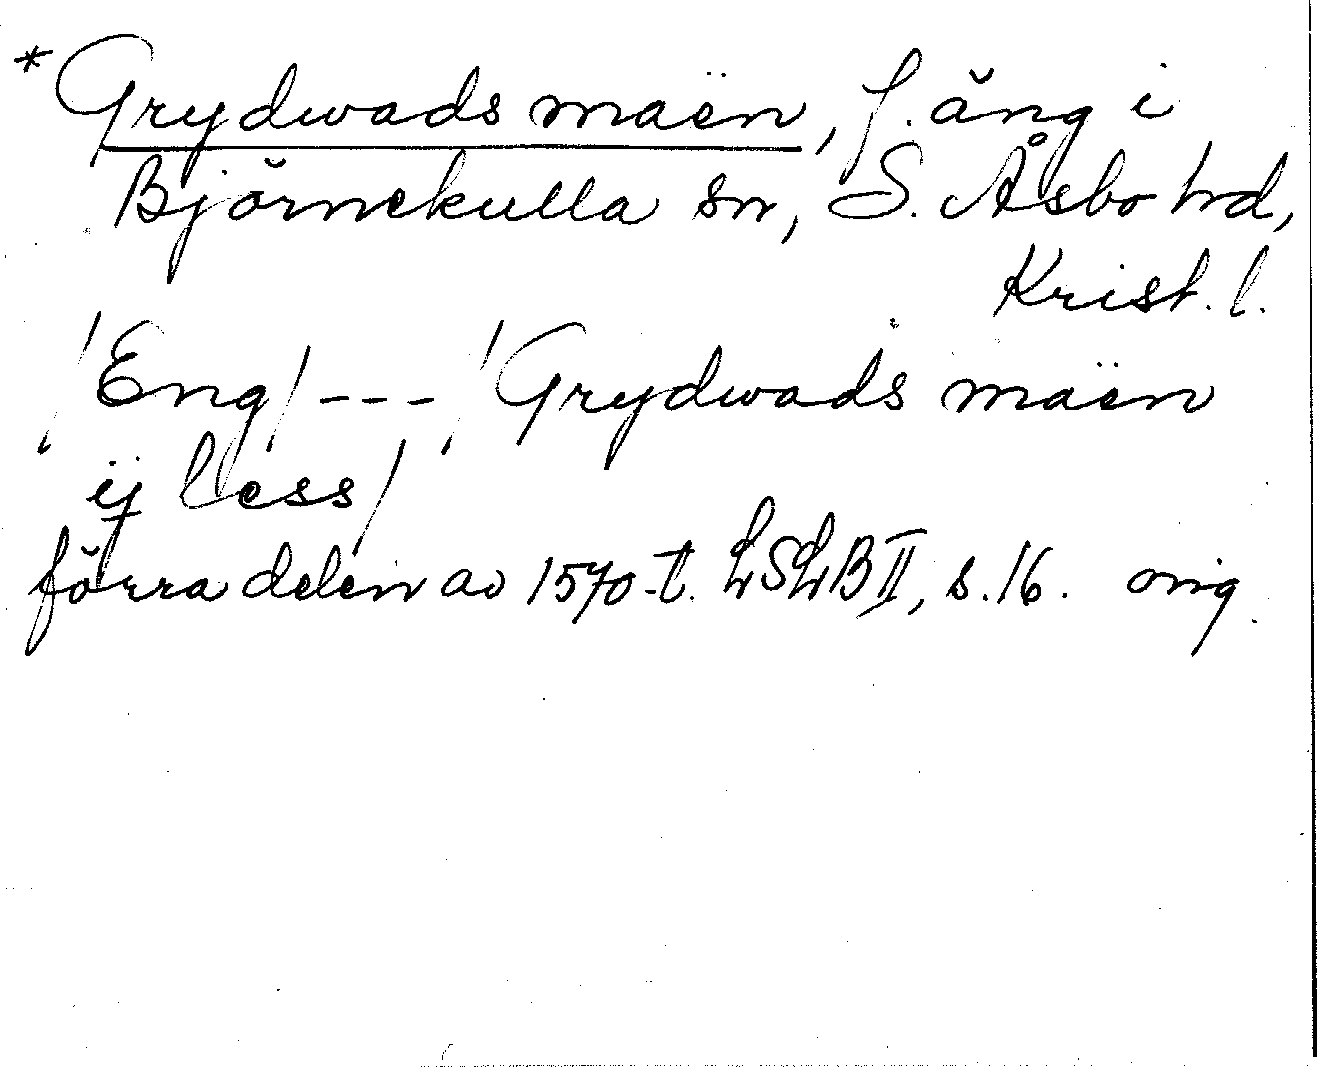 *Grydwads maën, f. äng i
Björnekulla sn, S. Åsbo hd,
Krist. l.
/Eng/ --- /Grydwads maën
ij less/
förra delen av 1570-t. LSLB II, s. 16. orig.